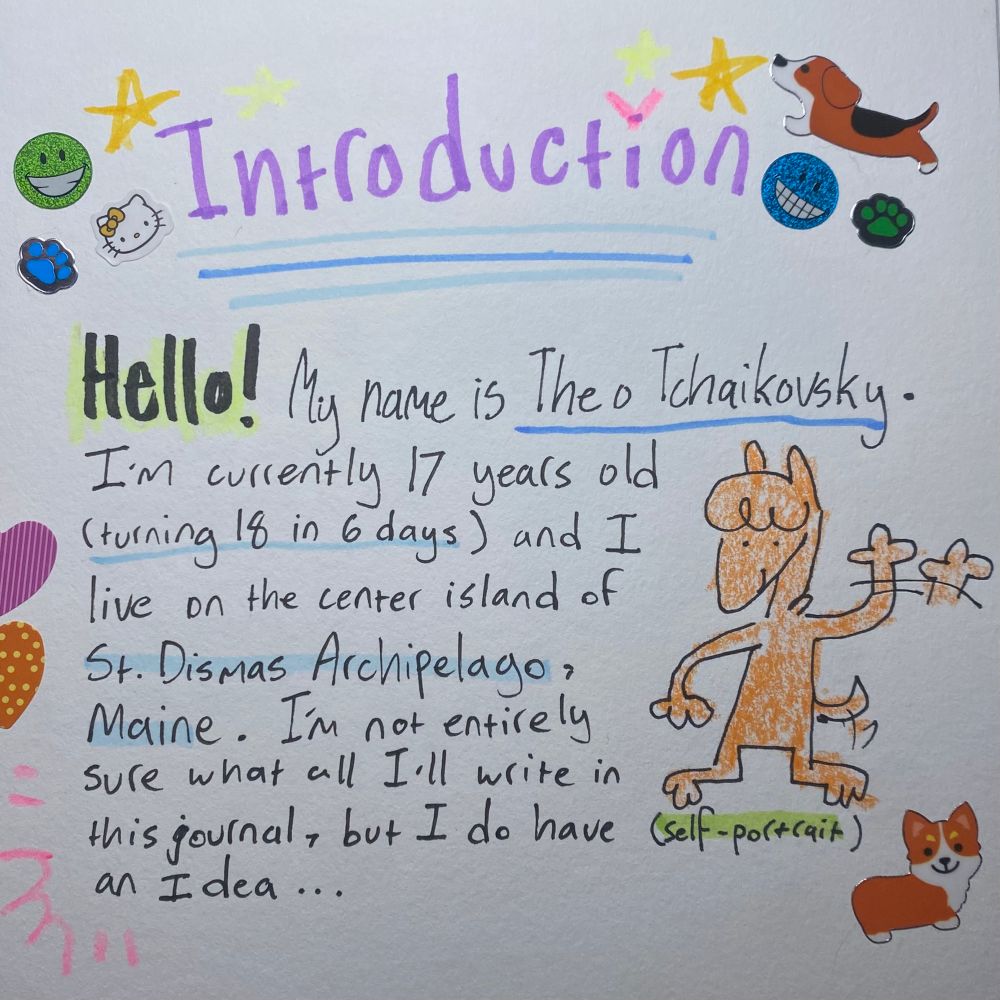 Introduction
Hello! My name is Theo Tchaikovsky.
I'm currently 17 years old
(turning 18 in 6 days) and I
live on the center island of
St. Dismas Archipelago,
Maine. I'm not entirely
sure what all I'll write in
this journal, but I do have
an Idea...
(self-portrait)